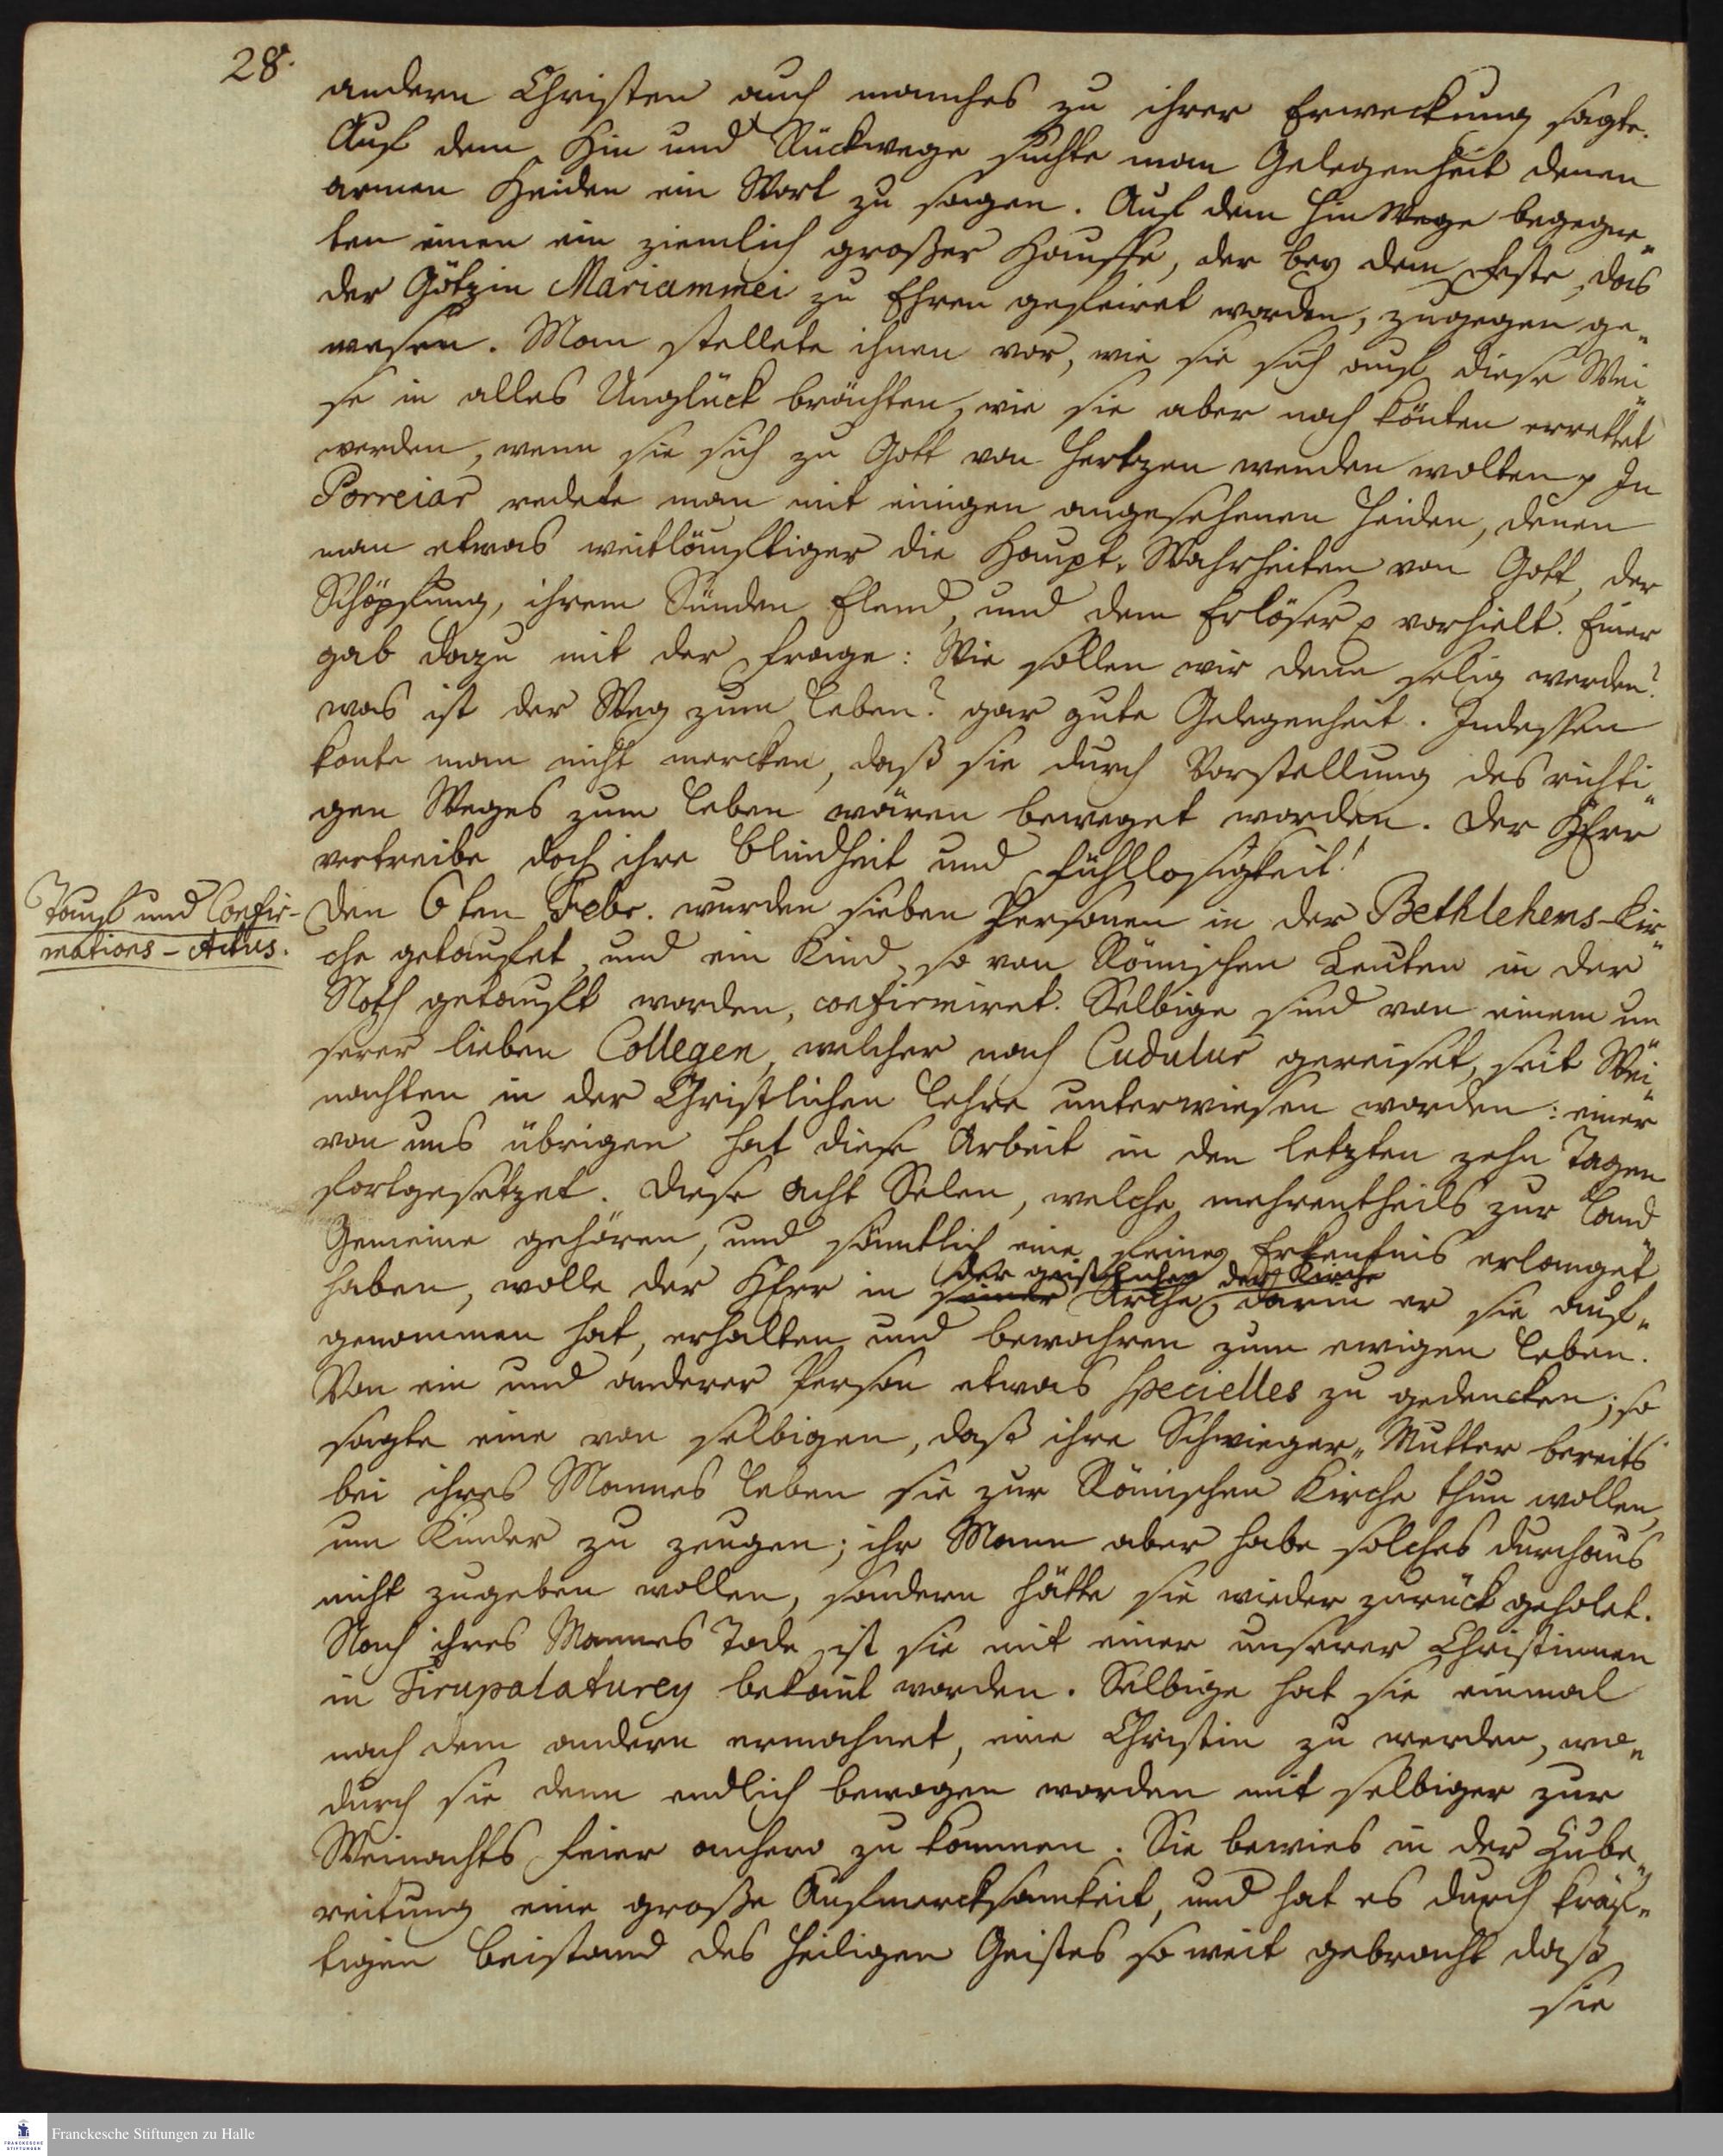 28.
andern Christen auch manches zu ihrer Erweckung sagte.
Auf dem Hin und Rückwege suchte man Gelegenheit denen
armen Heiden ein Wort zu sagen. Auf dem Hin Wege begegne„
ten einen ein ziemlich großer Hauffe, der bey dem Feste, das
der Götzin Mariammei zu Ehren gefeiret worden, zugegen ge„
wesen. Man stellete ihnen vor, wie sie sich auf diese Wei„
se in alles Unglück brächten, wie sie aber noch könten errettet
werden, wenn sie sich zu Gott von Hertzen wenden wolten p In
Porreiar redete man mit einigen angesehenen Heiden, denen
man etwas weitläuftiger die Haupt„Wahrheiten von Gott, der
Schöpfung, ihrem Sünden Elend, und dem Erlöser p vorhielt. Einer
gab dazu mit der Frage: Wie sollen wir denn selig werden?
was ist der Weg zum Leben? gar gute Gelegenheit. Indessen
konte man nicht mercken, daß sie durch Vorstellung des richti„
gen Weges zum Leben wären beweget worden. Der HErr
vertreibe doch ihre Blindheit und Fühllosigkeit!
Tauf und Confir-
mations-Actus.
Den 6ten Febr. wurden sieben Personen in der Bethlehems-Kir„
che getaufet, und ein Kind, so von Römischen Leuten in der
Noth getauft worden, confirmiret. Selbige sind von einem un„
serer lieben Collegen, welcher nach Cudulur gereiset, seit Wei„
nachten in der Christlichen Lehre unterwiesen worden: einer
von uns übrigen hat diese Arbeit in den letzten zehn Tagen
fortgesetzet. Diese acht Selen, welche mehrentheils zur Land„
Gemeine gehören, und sämtlich eine feine Erkentnis erlanget
der geistlichen der Kirche
haben, wolle der HErr in seiner Arche, darin er sie auf„
genommen hat, erhalten und bewahren zum ewigen Leben.
Von ein und anderer Person etwas specielles zu gedencken; so
sagte eine von selbigen, daß ihre Schwieger„Mutter bereits
bei ihres Mannes Leben sie zur Römischen Kirche thun wollen,
um Kinder zu zeugen; ihr Mann aber habe solches durchaus
nicht zugeben wollen, sondern hätte sie wieder zurück geholet.
Nach ihres Mannes Tode ist sie mit einer unserer Christinnen
in Tirupalaturey bekant worden. Selbige hat sie einmal
nach dem andern ermahnet, eine Christin zu werden, wo„
durch sie denn endlich bewogen worden mit selbiger zur
Weinachts Feier anhero zu kommen. Sie bewies in der Zube„
reitung eine große Aufmercksamkeit, und hat es durch kräf„
tigen Beistand des Heiligen Geistes so weit gebracht daß
sie
FRANCKESCHE STIFTUNGEN
Franckesche Stiftungen zu Halle